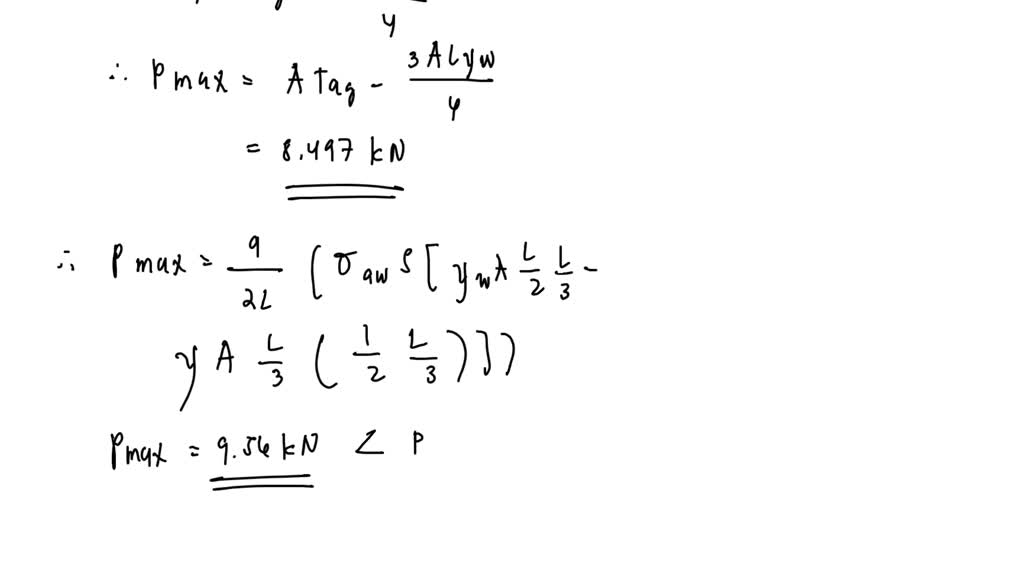 4
∴ Pmax = A τag - 3ALγw / 4
= 8.497 kN
∴ Pmax = 9 / 2L ( σaw S [ γw A L/2 L/3 -
γ A L/3 ( 1/2 L/3 ) ] )
Pmax = 9.56 kN < P